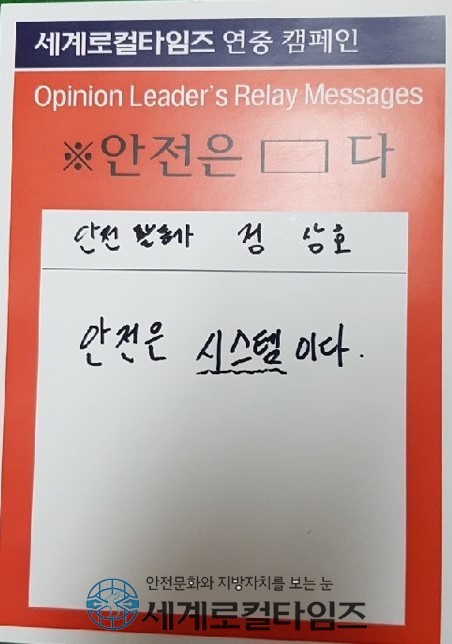 세계로컬타임즈 연중 캠페인
Opinion Leader's Relay Messages
※안전은 □ 다
안전 정 상호
안전은 시스템 이다.
안전문화와 지방자치를 보는 눈
세계로컬타임즈